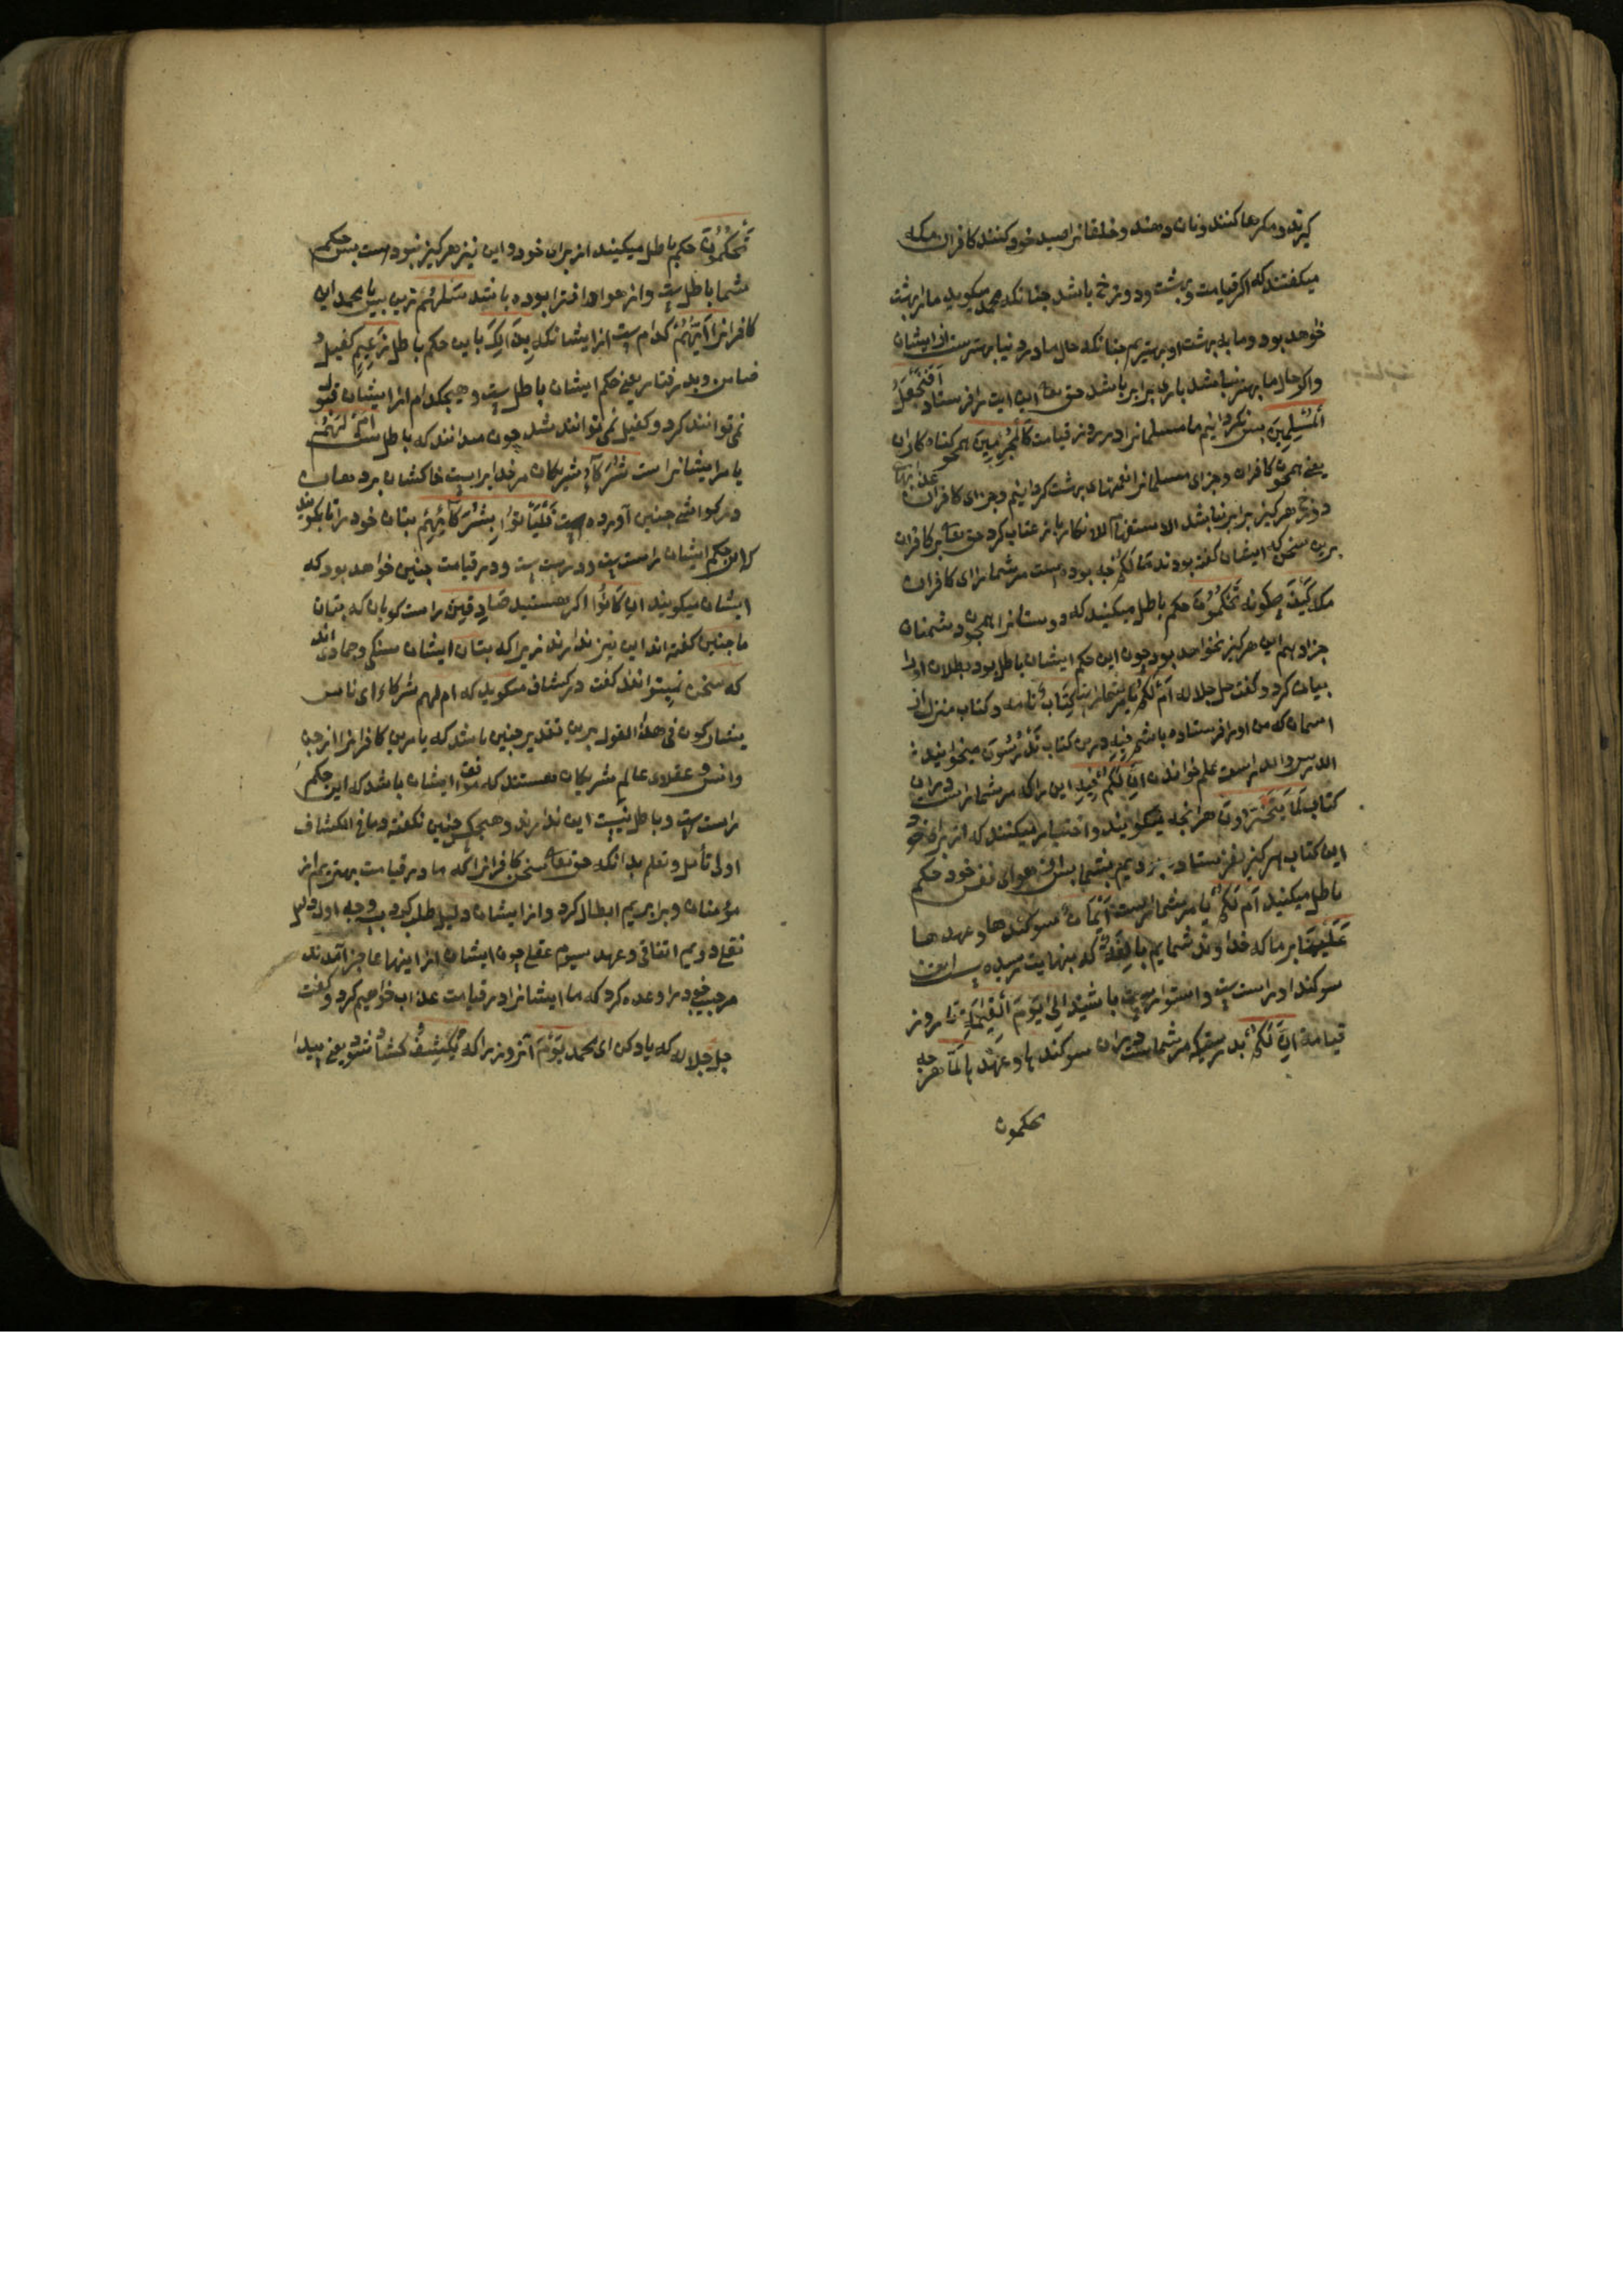 کیرند و مکرها کنند و نان دهند و خلقانرا صید خود کنند کافران مکه
میکفتند که اکر قیامت و بهشت و دوزخ باشد جنانکه محمد میکوید ما را بهشت
خواهد بود و ما بدبهشت او بهتریم جنانکه حال ما در دنیا بهترست از ایشان
واکر حال ما بهتر نباشد باری برابر باشد حق تعا این ایت را فرستاد اَفَنَجْعَلُ
اَلْمُسْلِمِینَ بس نکردانیم ما مسلمانرا در روز قیامت کَالْمُجْرِمِینَ همجو کناه کاران
یعنی همجون کافران و جزای مسلمانرا نعمتهای بهشت کردانیم و جزای کافران عذابهای
دوزخ هرکیز برابر نباشد الاستفهام للانکار باز عتاب کرد حق تعا بر کافران
برین سخن که ایشان کفته بودند مَا لَکُمْ جه بوده است مر شما را ای کافران
مکه کَیْفَ جکونه تَحْکُمُونَ حکم باطل میکنید که دوستانرا همجون دشمنان
جزا دهیم این هرکیز نخواهد بود جون این حکم ایشان باطل بود بطلان اورا
بیان کرد و کفت جل جلاله اَمْ لَکُمْ یا مر شما راست کِتَابٌ نامه و کتاب منزل از
اسمان که من اورا فرستاده باشم فِیهِ درین کتاب تَدْرُسُونَ میخوانید
الدرس والدراست علم خواندن اِنَّ لَکُمْ فِیهِ این را که مر شما راست دران
کتاب لَمَا یَتَخَیَّرُونَ هرانجه میکویند و اختیار میکنند که از برای خود
این کتاب هرکیز نفرستادیم بشما بس از هوای نفس خود حکم
باطل میکنید اَمْ لَکُمْ یا مر شما راست اَیْمَانٌ سوکندها و عهدها
عَلَیْنَا بر ما که خداوند شمایم بَالِغَةٌ که بنهایت رسیده است این
سوکند و راست و استوار باشید اِلَی یَوْمِ الْقِیَامَةِ تا روز
قیامة اِنَّ لَکُمْ بدرستیکه مر شماست دران سوکندها و عهدها لَمَا هر جه
تحکمون
تَحْکُمُونَ حکم باطل میکنید از برای خود و این نیز هرکیز نبودست بس حکم
شما باطلست و از هوا و افترا بوده باشد سَلْهُمْ ببرس یا محمد این
کافرانرا اَیُّهُمْ کدام ست از ایشانکه بِذَلِکَ باین حکم باطل زَعِیمٌ کفیل و
ضامن و بدرفتار یعنی حکم ایشان باطلست و هیجکدام از ایشان قبول
نمی توانند کرد و کفیل نمی توانند شد جون میدانند که باطلست اَمْ لَهُمْ
یا مر ایشانراست شُرَکَاءُ شریکان مر خدایراست خاکشان بر دهان
و مر کواشی جنین آورده است فَلْیَأْتُوا بِشُرَکَائِهِمْ بتان خود را تا بکویند
که این حکم ایشان راست ست و درست ست و در قیامت جنین خواهد بود که
ایشان میکویند اِنْ کَانُوا اکر هستید صَادِقِینَ راست کویان که بتان
ما جنین کفته اند این نیز ندارند زیرا که بتان ایشان سنکی و جمادی اند
که سخن نمیتوانند کفت در کشاف میکوید که ام لهم شرکاء ای ناس
یشارکون فی هذا القول برین تقدیر جنین باشد که یا مرین کافرانرا از جن
وانس و عقلاء عالم شریکان هستند که موافق ایشان باشد که این حکم
راست ست و باطل نیست این ندارند و هیجکس جنین نکفته و ما فی الکشاف
اولی تأمل و تعلم بدانکه حق تعا سخن کافرانرا که ما در قیامت بهتریم از
مؤمنان و برابریم ابطال کرد و از ایشان دلیل طلب کرد بسه وجه اول دلیل
نقلی دویم اتفاقی و عهد سیوم عقلی جون ایشان از اینها عاجز آمدند
مر حبیب خود را وعده کرد که ما ایشانرا در قیامت عذاب خواهیم کرد و کفت
جل جلاله که یاد کن ای محمد یَوْمَ آنروز را که یُکْشَفُ کشاده شود یعنی بیدا